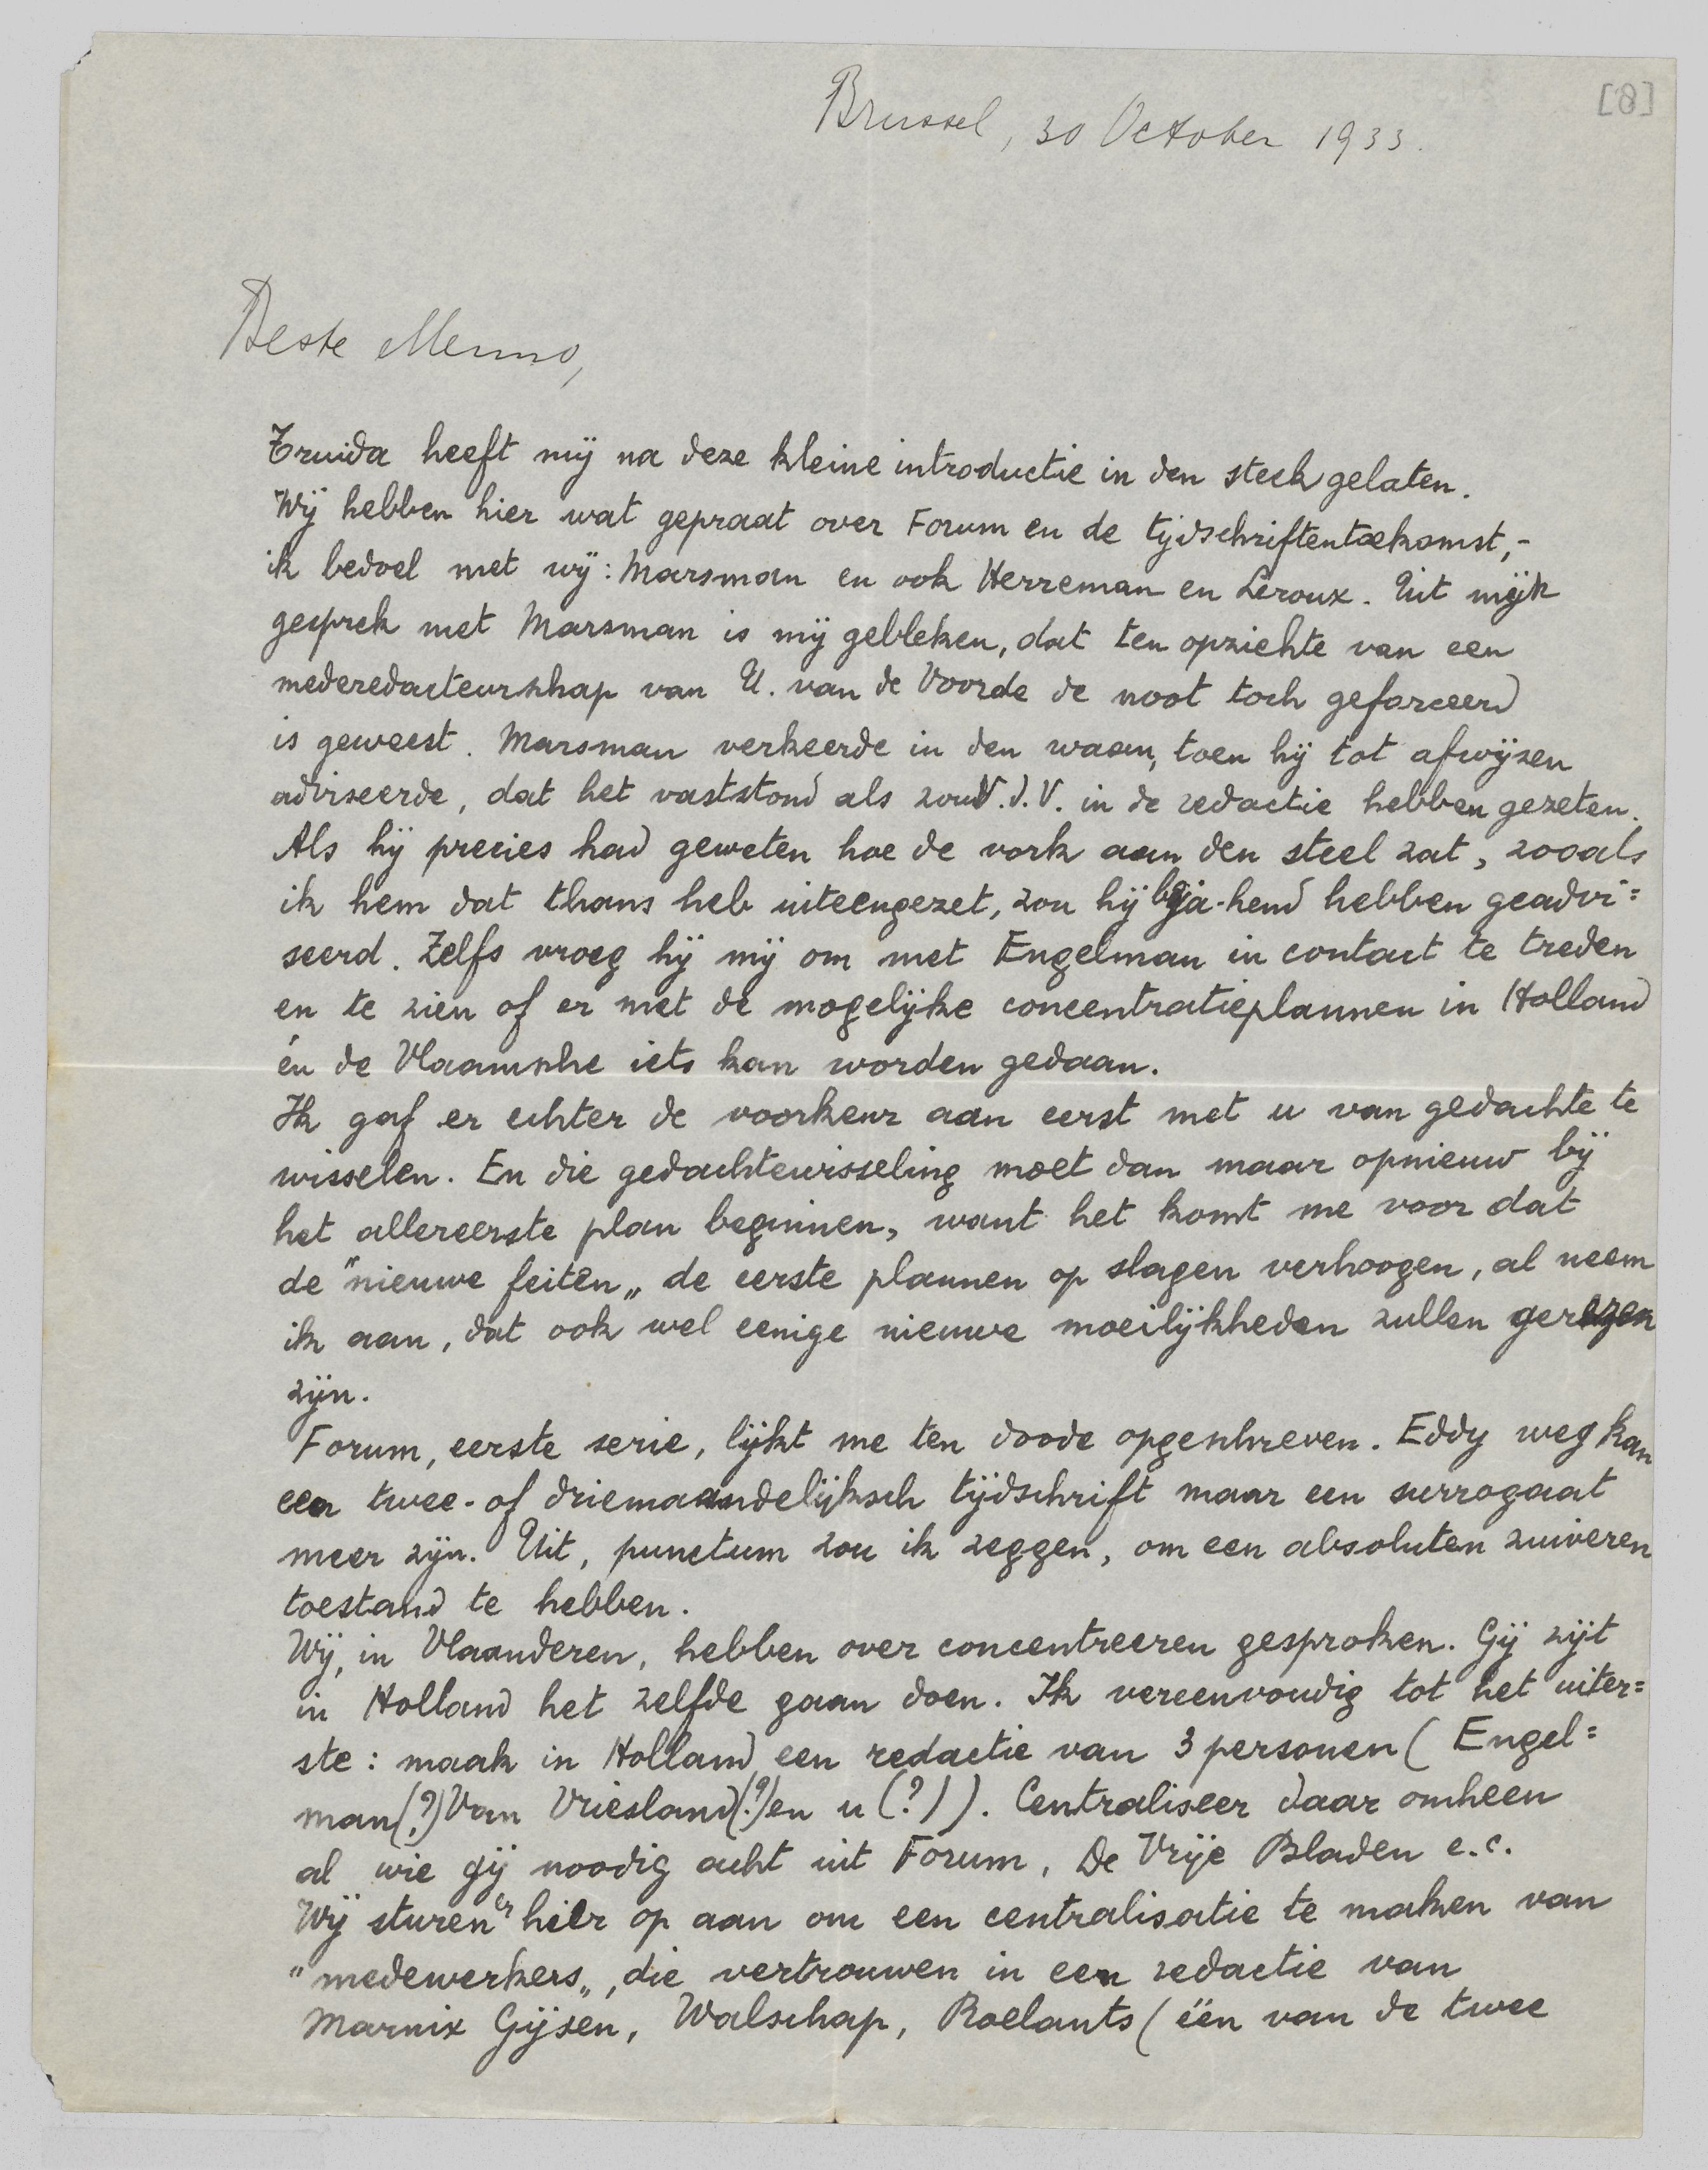 [8]
Brussel, 30 October 1933.
Beste Menno,
Truida heeft mij na deze kleine introductie in den steek gelaten.
Wij hebben hier wat gepraat over Forum en de tijdschriftentoekomst,-
ik bedoel met wij: Marsman en ook Herreman en Leroux. Uit mijn
gesprek met Marsman is mij gebleken, dat ten opzichte van een
mederedacteurschap van U. van de Voorde de noot toch geforceerd
is geweest. Marsman verkeerde in den waan, toen hij tot afwijzen
adviseerde, dat het vaststond als zou V.d.V. in de redactie hebben gezeten.
Als hij precies had geweten hoe de vork aan den steel zat, zooals
ik hem dat thans heb uiteengezet, zou hij bija-hend hebben geadvi=
seerd. Zelfs vroeg hij mij om met Engelman in contact te treden
en te zien of er met de mogelijke concentratieplannen in Holland
én de Vlaamsche iets kan worden gedaan.
Ik gaf er echter de voorkeur aan eerst met u van gedachte te
wisselen. En die gedachtewisseling moet dan maar opnieuw bij
het allereerste plan beginnen, want het komt me voor dat
de "nieuwe feiten„ de eerste plannen op slagen verhoogen, al neem
ik aan, dat ook wel eenige nieuwe moeilijkheden zullen gerezen
zijn.
Forum, eerste serie, lijkt me ten doode opgeschreven. Eddy weg kan
een twee- of driemaandelijksch tijdschrift maar een surrogaat
meer zijn. Uit, punctum zou ik zeggen, om een absoluten zuiveren
toestand te hebben.
Wij, in Vlaanderen, hebben over concentreeren gesproken. Gij zijt
in Holland het zelfde gaan doen. Ik vereenvoudig tot het uiter=
ste: maak in Holland een redactie van 3 personen (Engel=
man(?) Van Vriesland(?) en u (?)). Centraliseer daar omheen
al wie gij noodig acht uit Forum, De Vrije Bladen e.c.
Wij sturen er hier op aan om een centralisatie te maken van
"medewerkers„, die vertrouwen in een redactie van
Marnix Gijsen, Walschap, Roelants (één van de twee